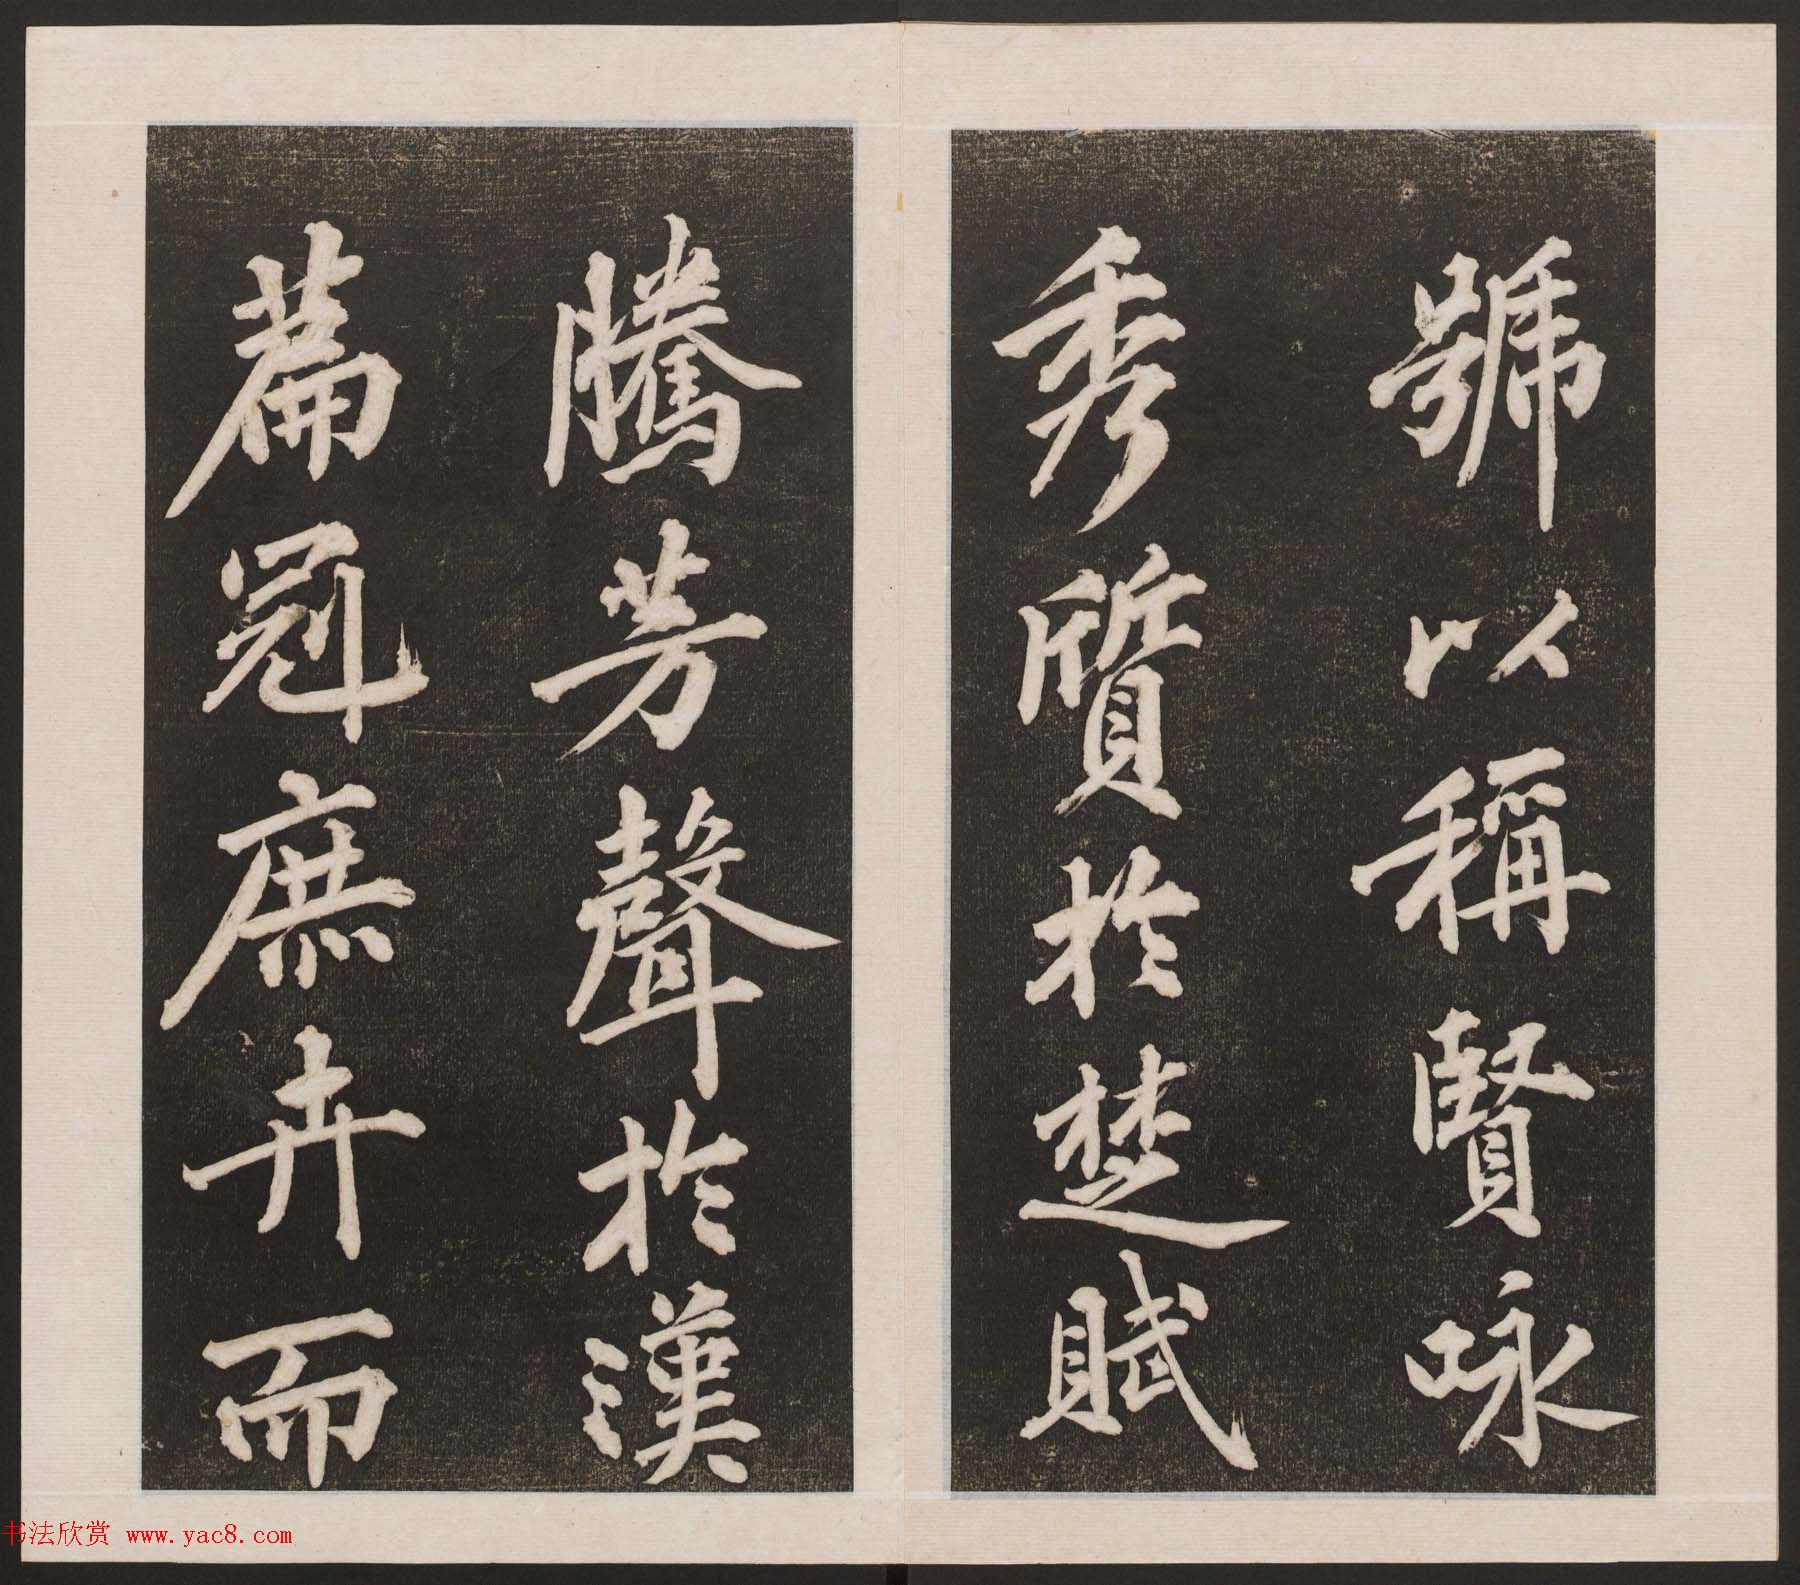 號以稱賢咏
秀質於楚賦
騰芳聲於漢
篇冠庶卉而
书法欣赏 www.yac8.com